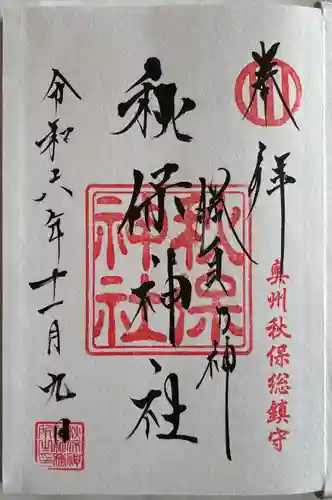 奉拝
奥州秋保総鎮守
勝負の神
秋保神社
秋保
神社
令和六年十一月九日